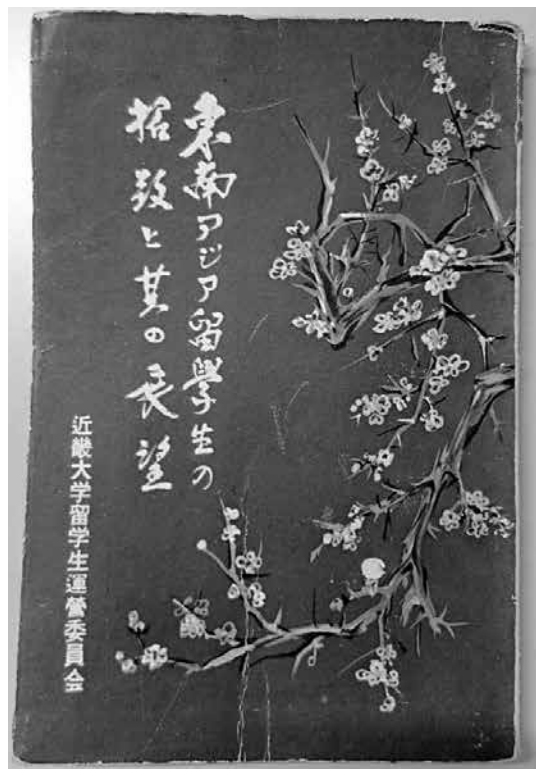 東南アジア留學生の
招致と其の展望
近畿大学留学生運營委員会